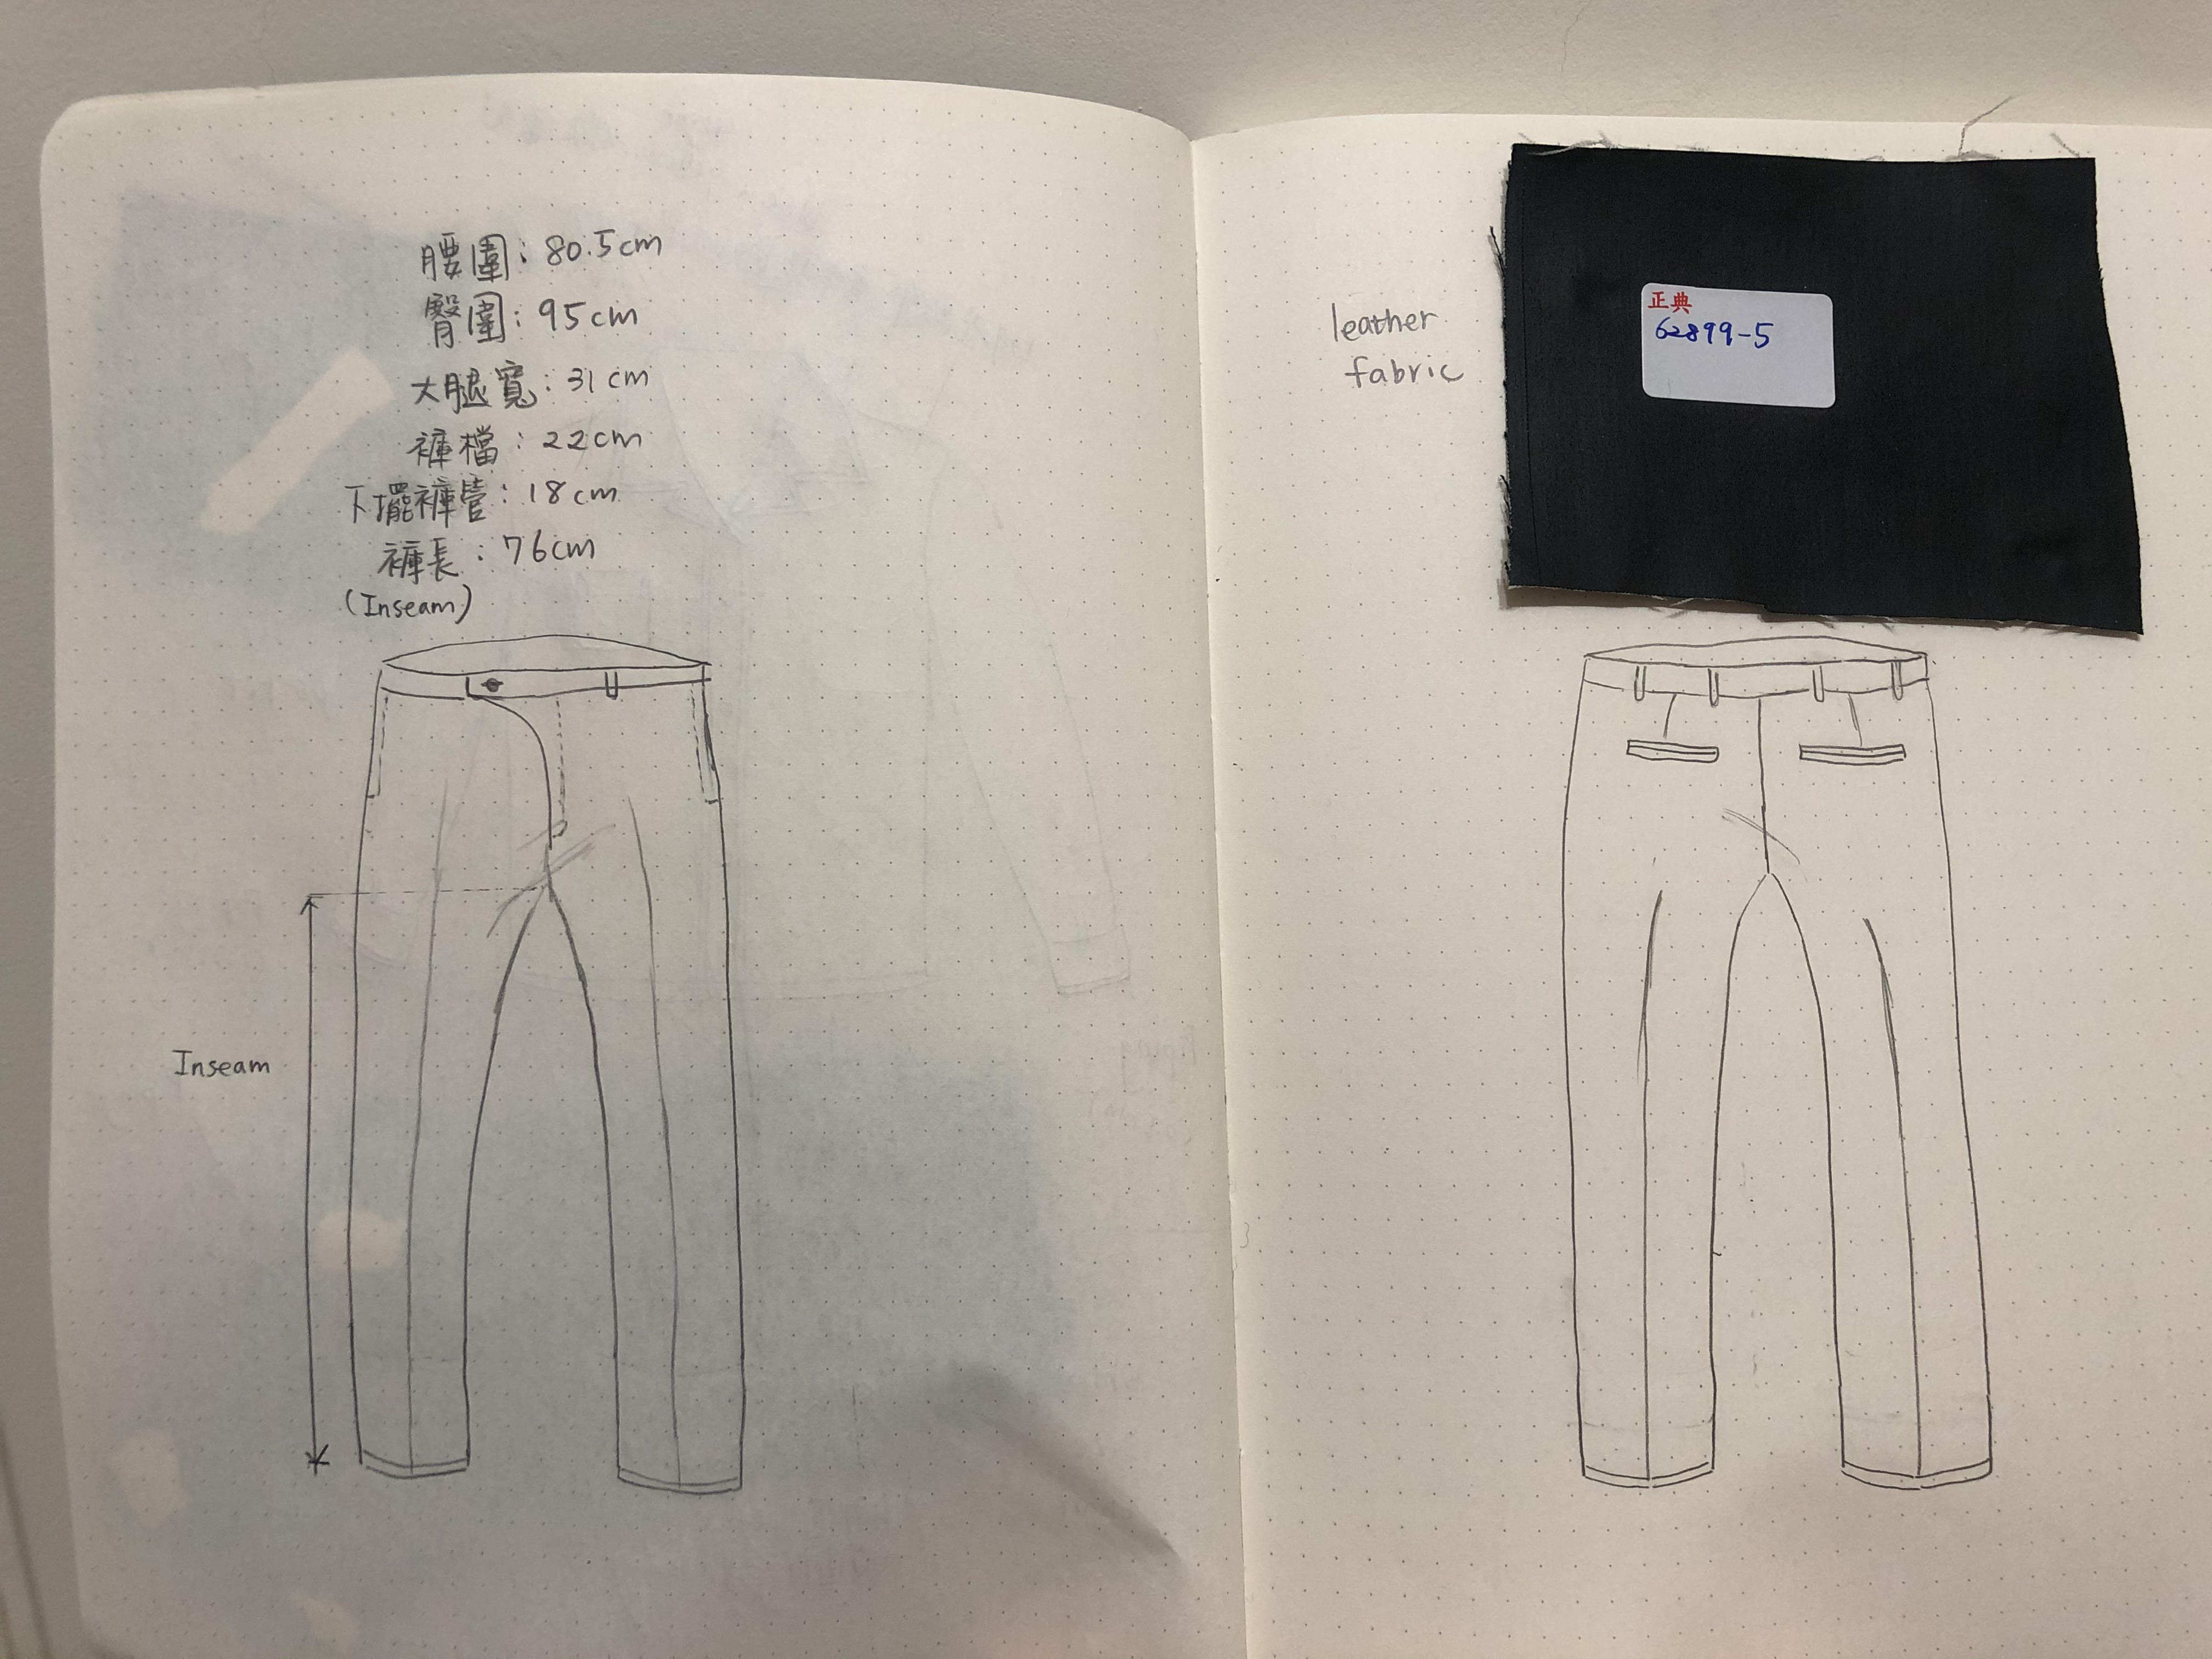 腰圍：80.5cm
臀圍：95cm
大腿寬：31cm
褲檔：22cm
下擺褲管：18cm
褲長：76cm
(Inseam)
Inseam
leather
fabric
正典
62899-5